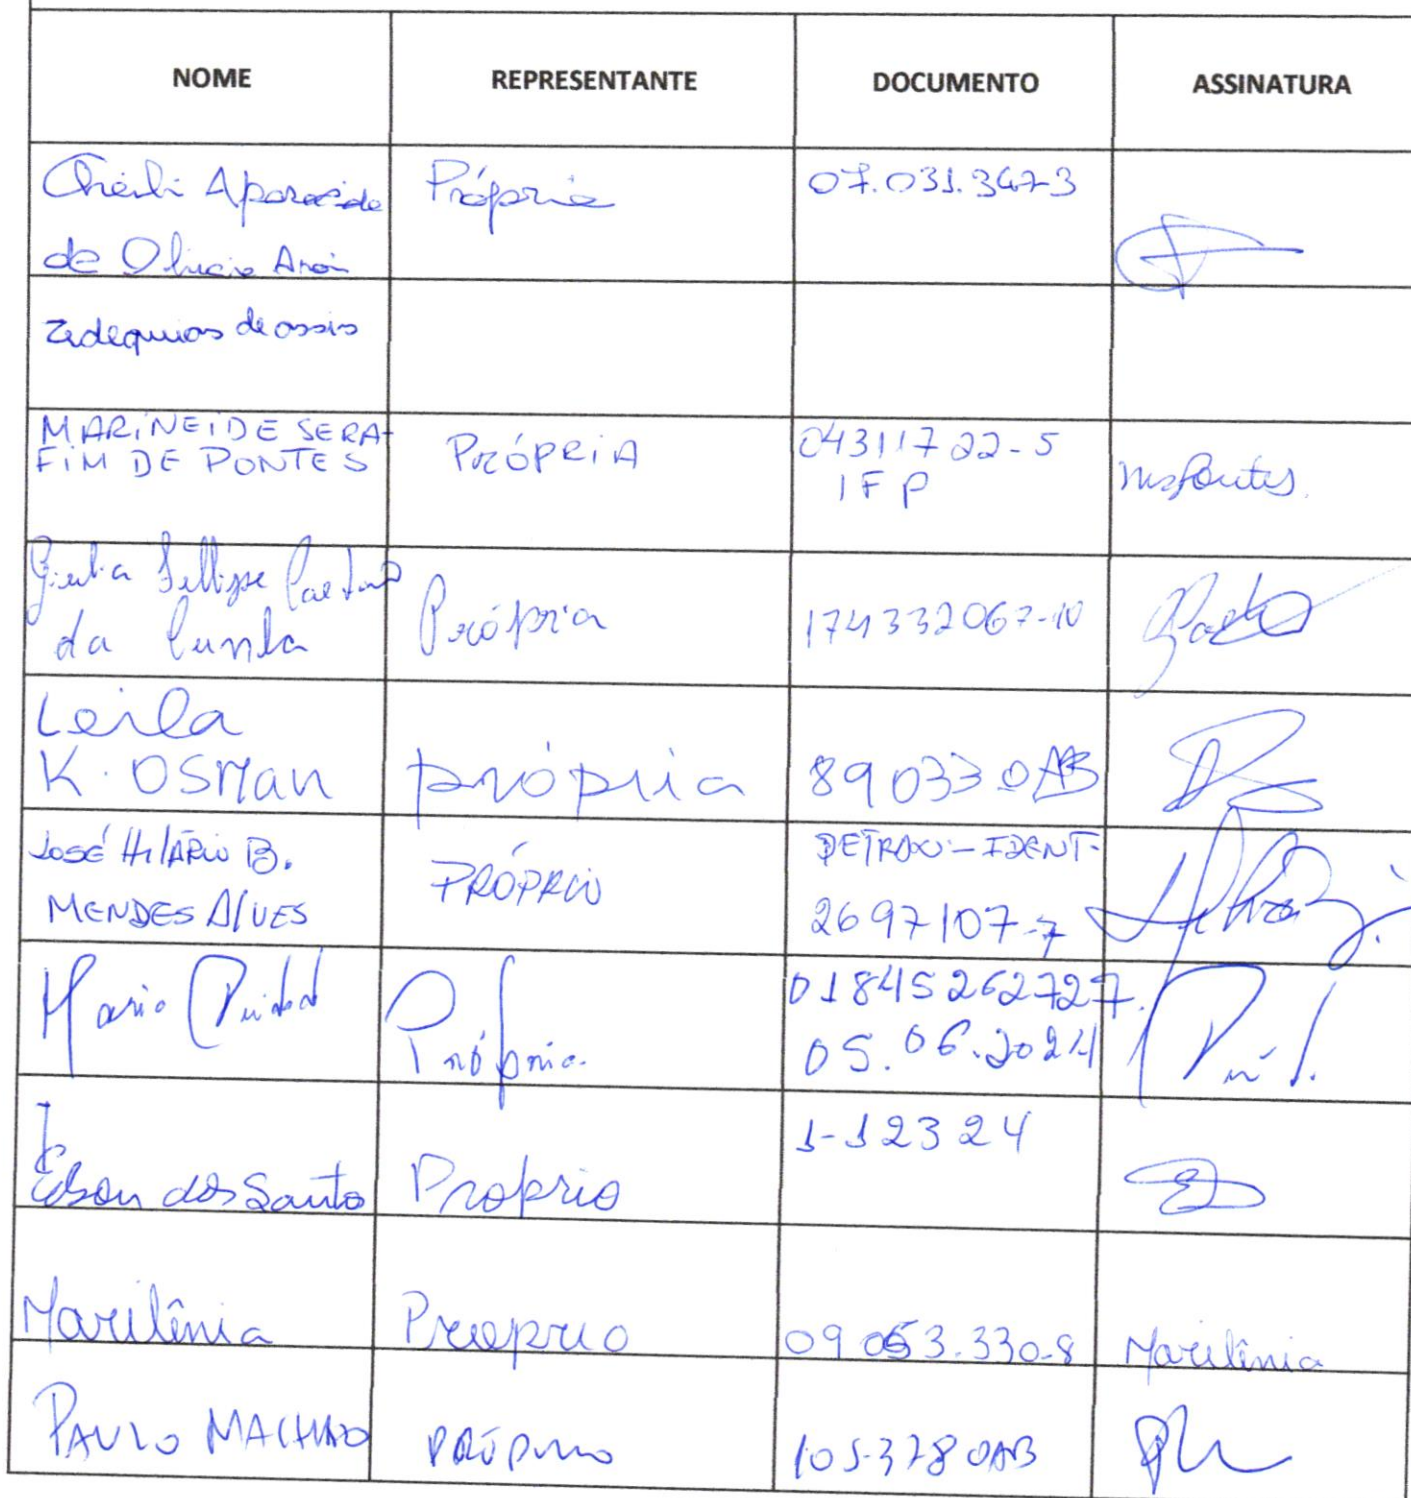 NOME REPRESENTANTE DOCUMENTO ASSINATURA
Aparecida Própria 07.031.347-3
de Oliveira
Zedequias de assis
MARINEIDE SERA-
FIM DE PONTES PRÓPRIA 04311722-5
IFP
Caetano
da Cunha Própria 174332067-10
Leila
K. OSMAN própria 89033 OAB
JOSÉ HILÁRIO B.
MENDES ALVES PRÓPRIO DETRAN - IDENT-
2697107-7
Mario Própria. 01845262727.
05.06.2024
Edson dos Santo Proprio 1-12324
Marilênia Proeprio 09053.330-8 Marilênia
PAULO MACHADO PRÓPRIO 105.378 OAB